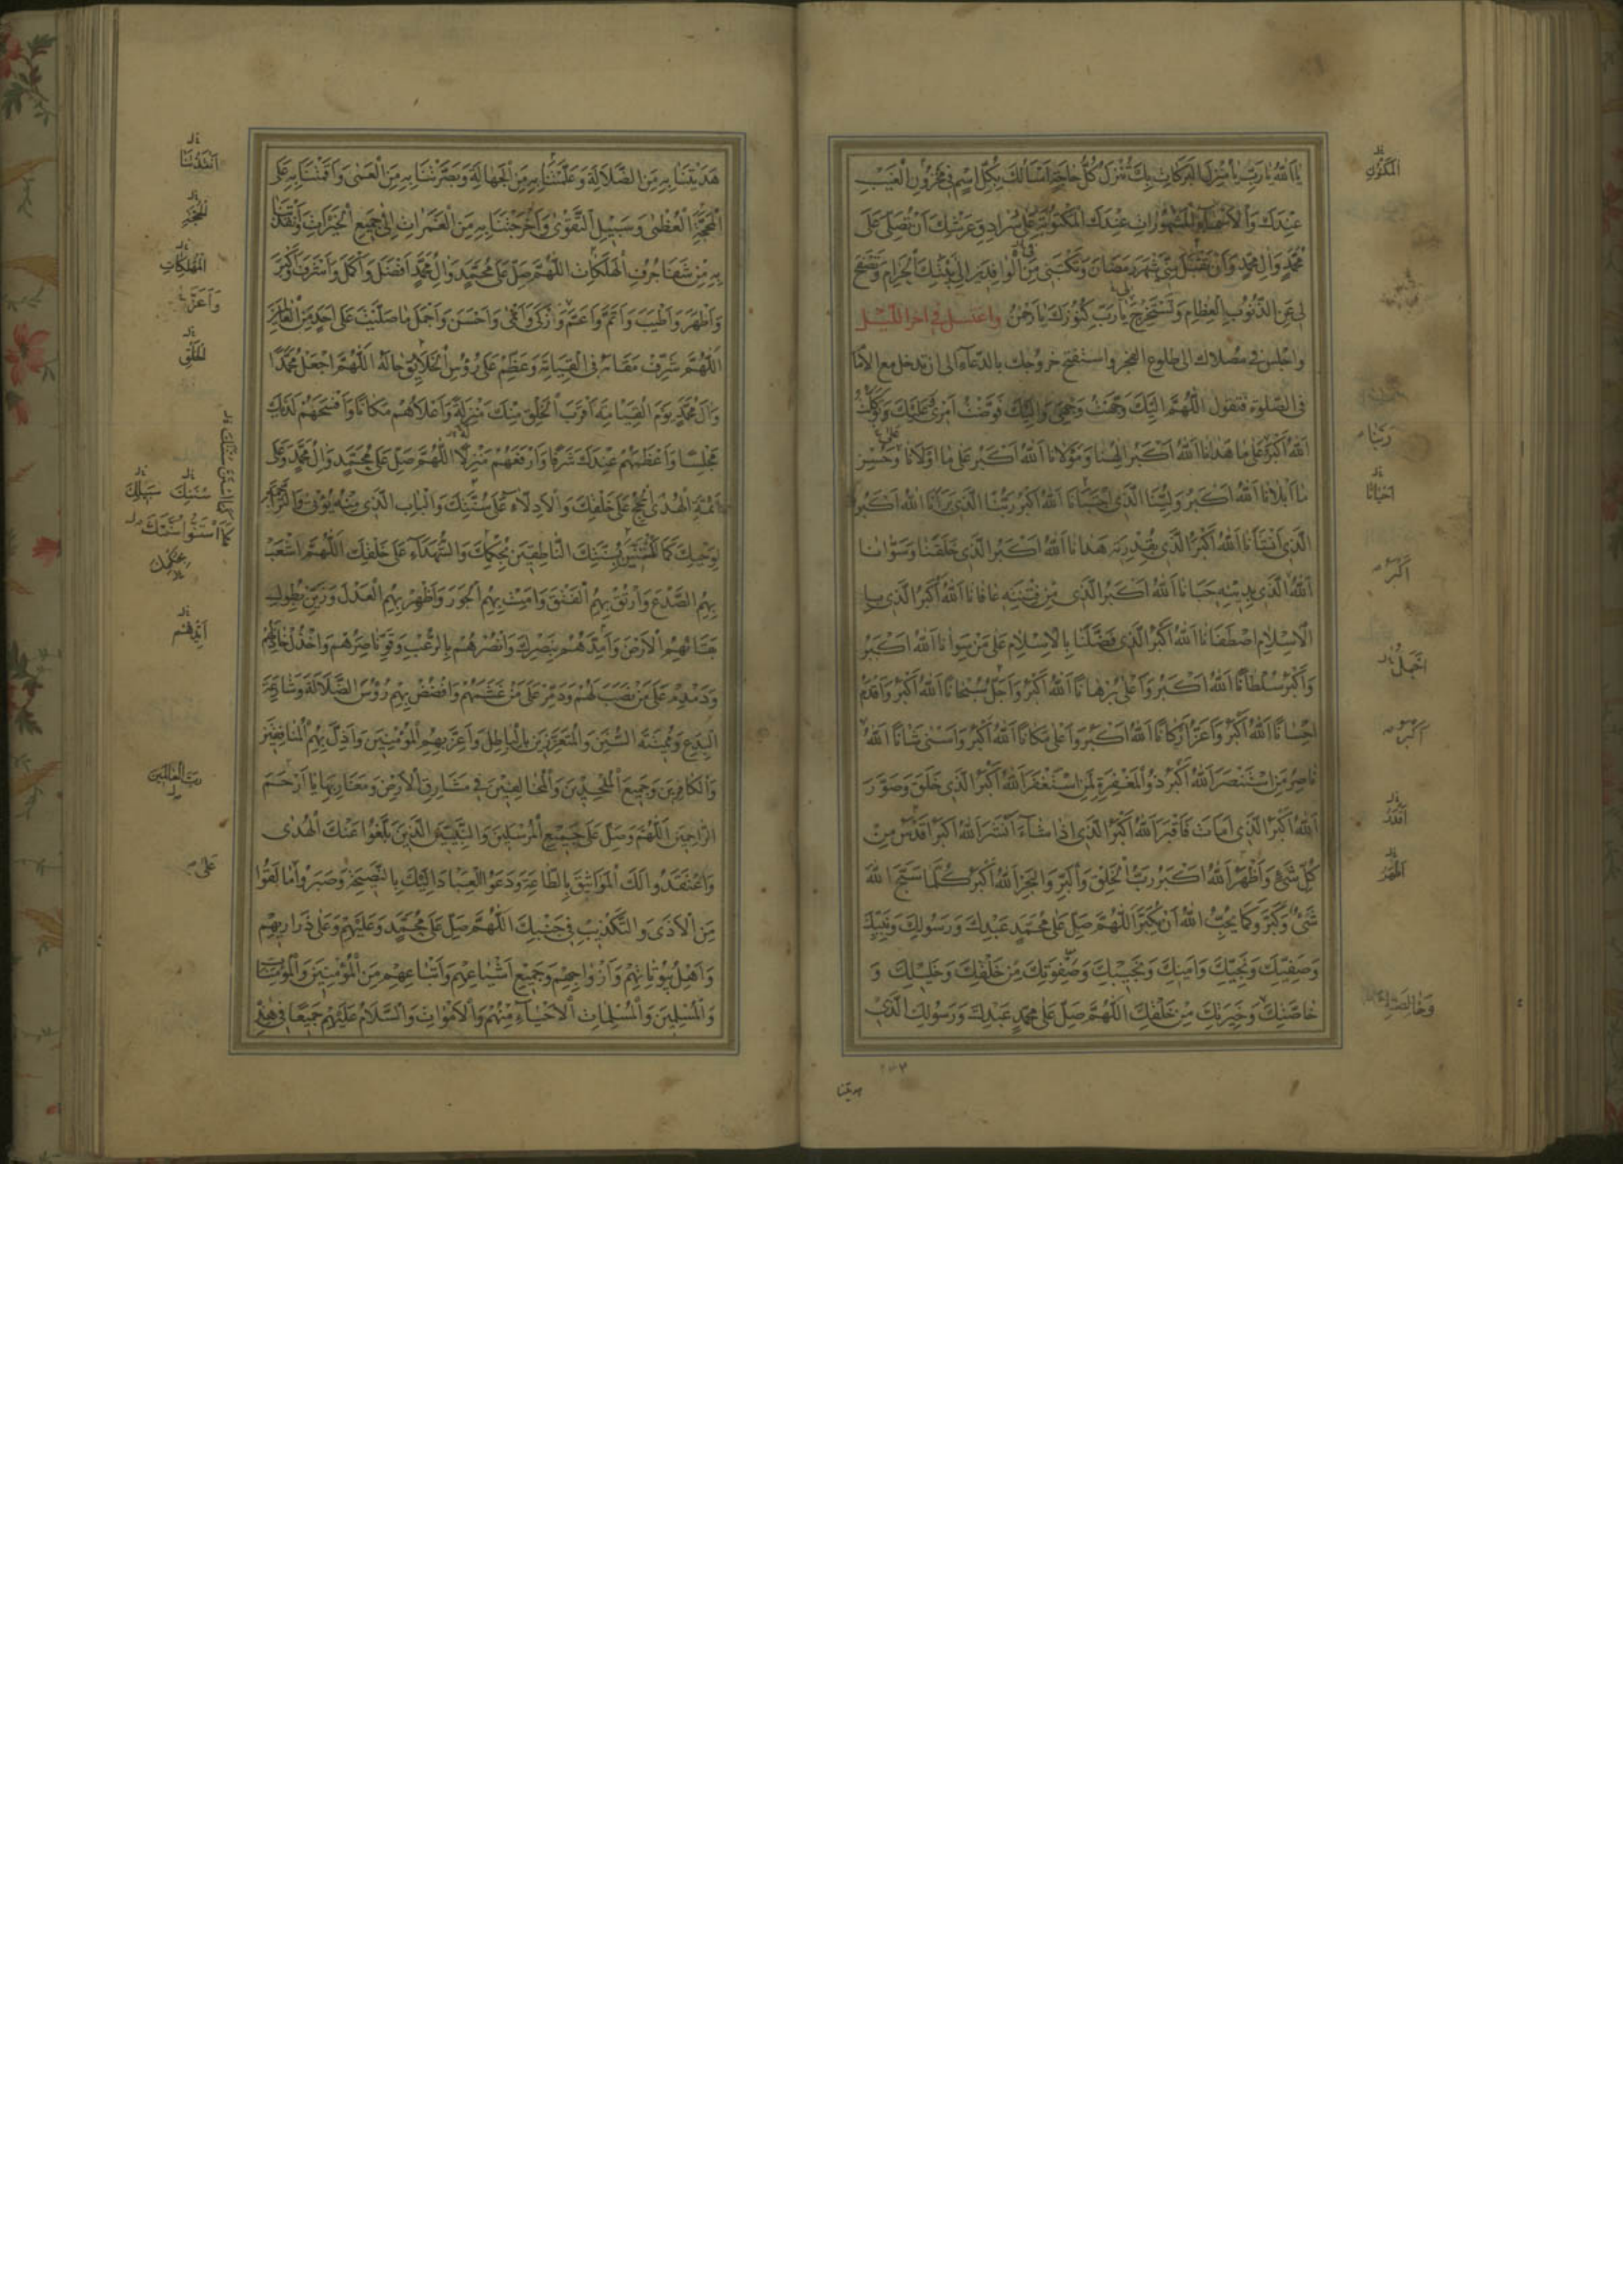 يا اَللهُ يا رَبِّ يا مُنْزِلَ البَرَكاتِ بِكَ تُنْزَلُ كُلُّ حاجَةٍ اَسْاَلُكَ بِكُلِّ اسْمٍ في مَخْزُونِ الْغَيْبِ
عِنْدَكَ وَالْاَسْماءِ الْمَشْهُوراتِ عِنْدَكَ الْمَكْتُوبَةِ عَلى سُرادِقِ عَرْشِكَ اَنْ تُصَلِّيَ عَلى
مُحَمَّدٍ وَآلِ مُحَمَّدٍ وَاَنْ تَقْبَلَ مِنّي شَهْرَ رَمَضانَ وَتَكْتُبَني مِنَ الْوافِدينَ اِلى بَيْتِكَ الْحَرامِ وَتَصْفَحَ
لي عَنِ الذُّنُوبِ الْعِظامِ وَتَسْتَخْرِجَ يا رَبِّ كُنُوزَكَ يا رَحْمنُ واغتسل في اخر الليل
واجلس في مصلاك الى طلوع الفجر واستفتح خروجك بالدعاء الى ان تدخل مع الامام
في الصلوة فتقول اَللّهُمَّ اِلَيْكَ وَجَّهْتُ وَجْهي وَاِلَيْكَ فَوَّضْتُ اَمْري وَعَلَيْكَ تَوَكَّلْتُ
اَللهُ اَكْبَرُ عَلى ما هَدانا اَللهُ اَكْبَرُ اِلهُنا وَمَوْلانا اَللهُ اَكْبَرُ عَلى ما اَوْلانا وَحُسْنِ
ما اَبْلانا اَللهُ اَكْبَرُ وَلِيُّنَا الَّذي اجْتَبانا اَللهُ اَكْبَرُ رَبُّنَا الَّذي بَرَاَنا اَللهُ اَكْبَرُ
الَّذي اَنْشَاَنا اَللهُ اَكْبَرُ الَّذي بِقُدْرَتِهِ هَدانا اَللهُ اَكْبَرُ الَّذي خَلَقَنا وَسَوّانا
اَللهُ الَّذي بِدينِهِ حَبانا اَللهُ اَكْبَرُ الَّذي مِنْ فِتْنَتِهِ عافانا اَللهُ اَكْبَرُ الَّذي
الْاِسْلامِ اصْطَفانا اَللهُ اَكْبَرُ الَّذي فَضَّلَنا بِالْاِسْلامِ عَلى مَنْ سِوانا اَللهُ اَكْبَرُ
وَاَكْبَرُ سُلْطانًا اَللهُ اَكْبَرُ وَاَعْلى بُرْهانًا اَللهُ اَكْبَرُ وَاَجَلُّ سُبْحانًا اَللهُ اَكْبَرُ وَاَقْدَمُ
اِحْسانًا اَللهُ اَكْبَرُ وَاَعَزُّ اَرْكانًا اَللهُ اَكْبَرُ وَاَعْلى مَكانًا اَللهُ اَكْبَرُ وَاَسْنى شَاْنًا اَللهُ
ناصِرُ مَنِ اسْتَنْصَرَ اَللهُ اَكْبَرُ ذُو الْمَغْفِرَةِ لِمَنِ اسْتَغْفَرَ اَللهُ اَكْبَرُ الَّذي خَلَقَ وَصَوَّرَ
اَللهُ اَكْبَرُ الَّذي اَماتَ فَاَقْبَرَ اَللهُ اَكْبَرُ الَّذي اِذا شاءَ اَنْشَرَ اَللهُ اَكْبَرُ اَقْدَسُ مِنْ
كُلِّ شَيْءٍ وَاَظْهَرُ اَللهُ اَكْبَرُ رَبُّ الْخَلْقِ وَالْبَرِّ وَالْبَحْرِ اَللهُ اَكْبَرُ كُلَّما سَبَّحَ اللهَ
شَيْءٌ وَكَبَّرَ وَكَما يُحِبُّ اللهُ اَنْ يُكَبَّرَ اَللّهُمَّ صَلِّ عَلى مُحَمَّدٍ عَبْدِكَ وَرَسُولِكَ وَنَبِيِّكَ
وَصَفِيِّكَ وَنَجِيِّكَ وَاَمينِكَ وَنَجيبِكَ وَصَفْوَتِكَ مِنْ خَلْقِكَ وَخَليلِكَ وَ
خاصَّتِكَ وَخِيَرَتِكَ مِنْ خَلْقِكَ اَللّهُمَّ صَلِّ عَلى مُحَمَّدٍ عَبْدِكَ وَرَسُولِكَ الَّذي
هديتنا
رَبُّنا
اَحْيانا
اَكْبَرُ
اَكْبَرُ
هَدَيْتَنا بِهِ مِنَ الضَّلالَةِ وَعَلَّمْتَنا بِهِ مِنَ الْجَهالَةِ وَبَصَّرْتَنا بِهِ مِنَ الْعَمى وَاَقَمْتَنا بِهِ عَلَى
الْمَحَجَّةِ الْعُظْمى وَسَبيلِ التَّقْوى وَاَخْرَجْتَنا بِهِ مِنَ الْغَمَراتِ اِلى جَميعِ الْخَيْراتِ وَاَنْقَذْتَنا
بِهِ مِنْ شَفا جُرُفِ الْهَلَكاتِ اَللّهُمَّ صَلِّ عَلى مُحَمَّدٍ وَآلِ مُحَمَّدٍ اَفْضَلَ وَاَكْمَلَ وَاَشْرَفَ وَاَكْبَرَ
وَاَطْهَرَ وَاَطْيَبَ وَاَتَمَّ وَاَعَمَّ وَاَزْكى وَاَنْمى وَاَحْسَنَ وَاَجْمَلَ ما صَلَّيْتَ عَلى اَحَدٍ مِنَ الْعالَمينَ
اَللّهُمَّ شَرِّفْ مَقامَهُ فِي الْقِيامَةِ وَعَظِّمْ عَلى رُؤُسِ الْخَلائِقِ حالَهُ اَللّهُمَّ اجْعَلْ مُحَمَّدًا
وَآلَ مُحَمَّدٍ يَوْمَ الْقِيامَةِ اَقْرَبَ الْخَلْقِ مِنْكَ مَنْزِلَةً وَاَعْلاهُمْ مَكانًا وَاَفْسَحَهُمْ لَدَيْكَ
مَجْلِسًا وَاَعْظَمَهُمْ عِنْدَكَ شَرَفًا وَاَرْفَعَهُمْ مَنْزِلًا اَللّهُمَّ صَلِّ عَلى مُحَمَّدٍ وَآلِ مُحَمَّدٍ وَعَلى
اَئِمَّةِ الْهُدى الْحُجَجِ عَلى خَلْقِكَ وَالْاَدِلّاءِ عَلى سُنَّتِكَ وَالْبابِ الَّذي مِنْهُ يُؤْتى وَالتَّراجِمَةِ
لِوَحْيِكَ كَما بِسُنَّتِكَ النّاطِقينَ بِحِكْمَتِكَ وَالشُّهَداءِ عَلى خَلْقِكَ اَللّهُمَّ اشْعَبْ
بِهِمُ الصَّدْعَ وَارْتُقْ بِهِمُ الْفَتْقَ وَاَمِتْ بِهِمُ الْجَوْرَ وَاَظْهِرْ بِهِمُ الْعَدْلَ وَزَيِّنْ بِطُولِ
بَقائِهِمُ الْاَرْضَ وَاَيِّدْهُمْ بِنَصْرِكَ وَانْصُرْهُمْ بِالرُّعْبِ وَقَوِّ ناصِرَهُمْ وَاخْذُلْ خاذِلَهُمْ
وَدَمْدِمْ عَلى مَنْ نَصَبَ لَهُمْ وَدَمِّرْ عَلى مَنْ غَشَمَهُمْ وَافْضُضْ بِهِمْ رُؤُسَ الضَّلالَةِ وَشارِعَةَ
الْبِدَعِ وَمُميتَةَ السُّنَنِ وَالْمُتَعَزِّزينَ بِالْباطِلِ وَاَعِزَّ بِهِمُ الْمُؤْمِنينَ وَاَذِلَّ بِهِمُ الْمُنافِقينَ
وَالْكافِرينَ وَجَميعَ الْمُلْحِدينَ وَالْمُخالِفينَ في مَشارِقِ الْاَرْضِ وَمَغارِبِها يا اَرْحَمَ
الرّاحِمينَ اَللّهُمَّ وَصَلِّ عَلى جَميعِ الْمُرْسَلينَ وَالنَّبِيّينَ الَّذينَ بَلَّغُوا عَنْكَ الْهُدى
وَاعْتَقَدُوا لَكَ الْمَواثيقَ بِالطّاعَةِ وَدَعَوُا الْعِبادَ اِلَيْكَ بِالنَّصيحَةِ وَصَبَرُوا ما لَقُوا
مِنَ الْاَذى وَالتَّكْذيبِ في جَنْبِكَ اَللّهُمَّ صَلِّ عَلى مُحَمَّدٍ وَعَلَيْهِمْ وَعَلى ذَراريهِمْ
وَاَهْلِ بُيُوتاتِهِمْ وَاَزْواجِهِمْ وَجَميعِ اَشْياعِهِمْ وَاَتْباعِهِمْ مِنَ الْمُؤْمِنينَ وَالْمُؤْمِناتِ
وَالْمُسْلِمينَ وَالْمُسْلِماتِ الْاَحْياءِ مِنْهُمْ وَالْاَمْواتِ وَالسَّلامُ عَلَيْهِمْ جَميعًا في هذِهِ
اَنْقَذْتَنا
الْمُهْلِكاتِ
وَاَعَزَّ
الْخَلْقِ
سُنَنِكَ
اَيِّدْهُمْ
رَبَّ الْعالَمينَ
عَلى